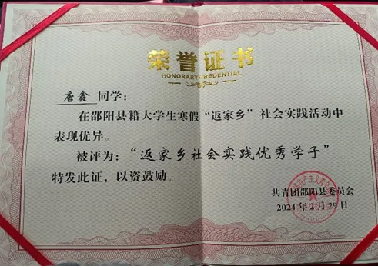 荣誉证书
HONORARY CREDENTIAL
同学:
在邵阳县籍大学生寒假“返家乡”社会实践活动中
表现优异。
被评为:“返家乡社会实践优秀学子”
特发此证,以资鼓励。
共青团邵阳县委员会
2024年2月29日